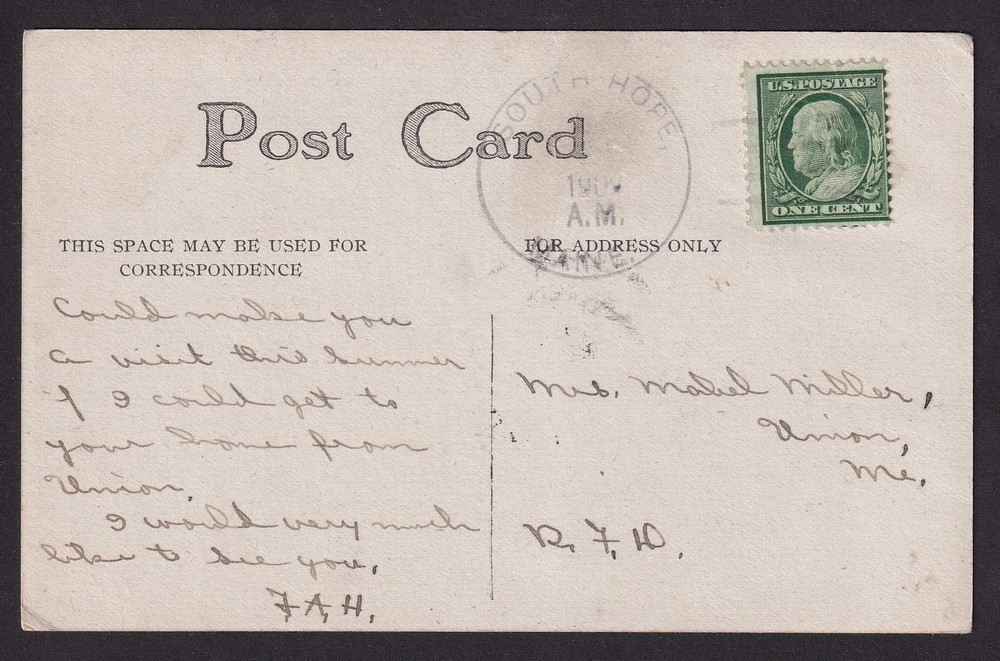 Post Card
SOUTH HOPE,
1909
A.M.
MAINE.
U.S. POSTAGE
ONE CENT
THIS SPACE MAY BE USED FOR
CORRESPONDENCE
FOR ADDRESS ONLY
Could make you
a visit this summer
if I could get to
your home from
Union.
I would very much
like to see you.
F.A.H.
Mrs. Mabel Miller,
Union,
Me.
R.F.D.